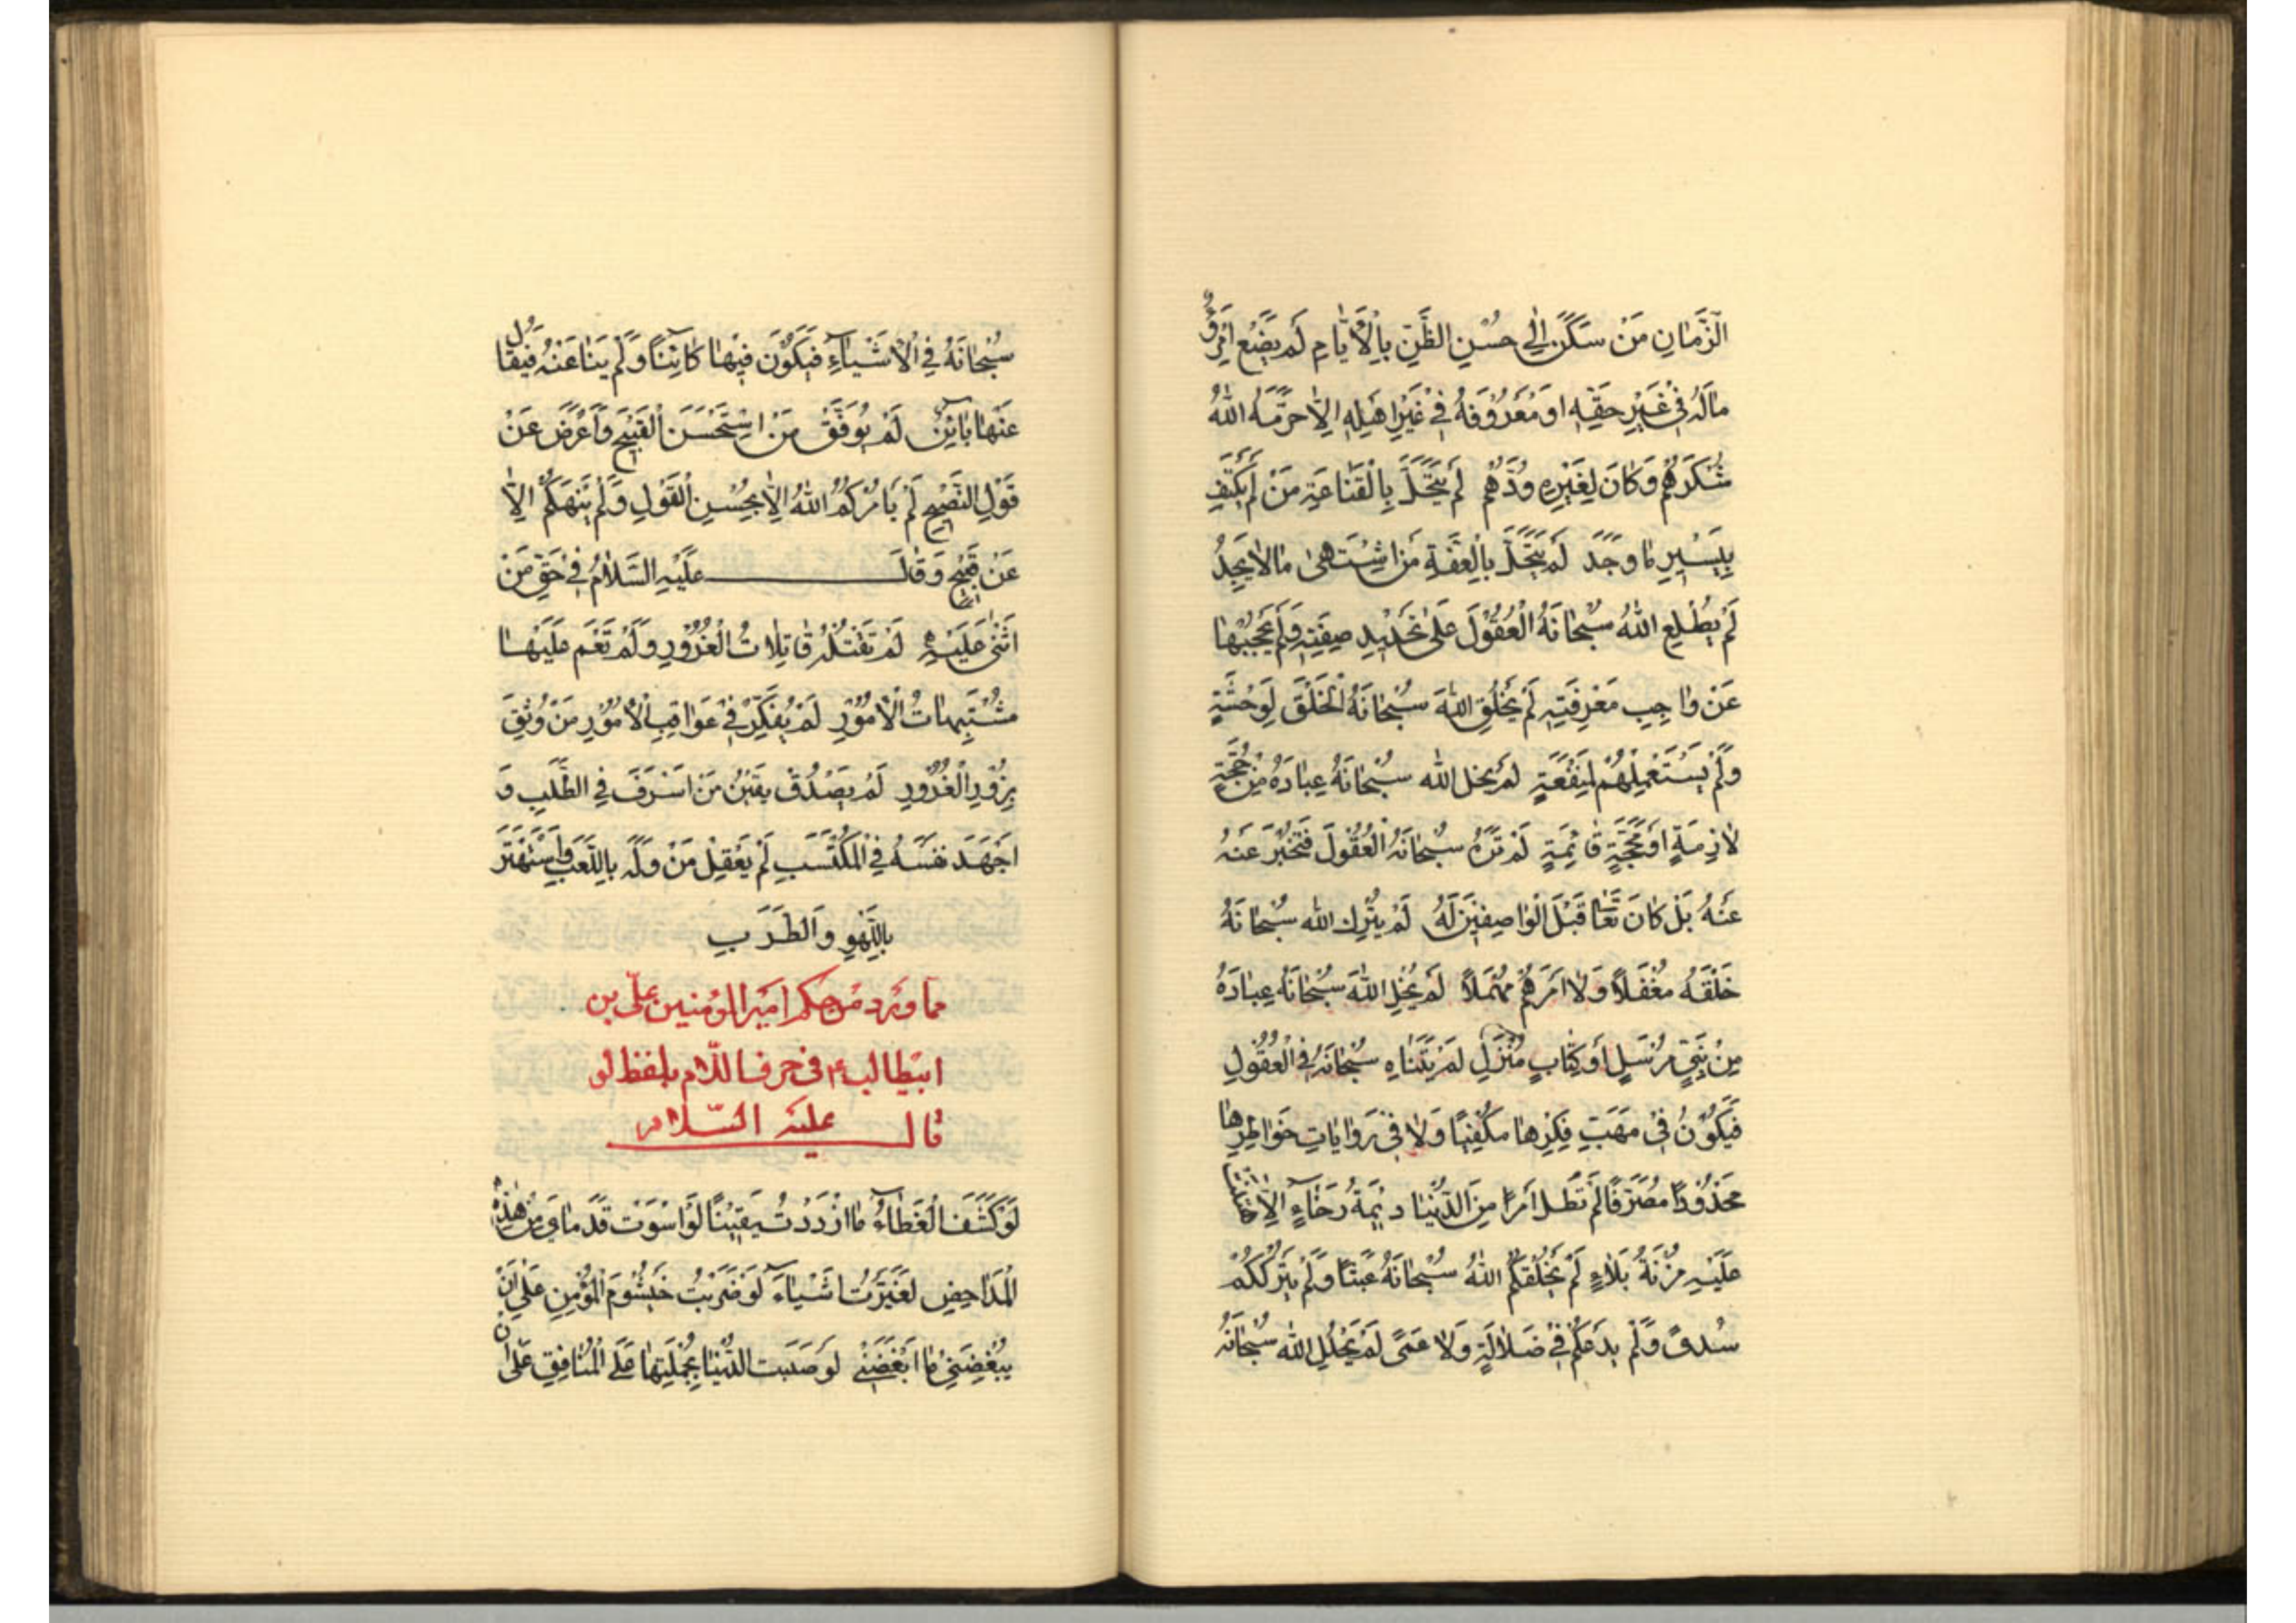 الزَّمَانِ مَنْ سَكَنَ اِلٰى حُسْنِ الظَّنِّ بِالْاَيَّامِ لَمْ يَضَعِ امْرُؤٌ
مَالَهُ فِي غَيْرِ حَقِّهِ اَوْ مَعْرُوفَهُ فِي غَيْرِ اَهْلِهِ اِلَّا حَرَّمَهُ اللهُ
شُكْرَهُمْ وَكَانَ لِغَيْرِهِ وُدُّهُمْ لَمْ يَتَحَلَّ بِالْقَنَاعَةِ مَنْ لَمْ يَكْتَفِ
بِيَسِيرِ مَا وَجَدَ لَمْ يَتَحَلَّ بِالْعِفَّةِ مَنِ اشْتَهٰى مَا لَا يَجِدُ
لَمْ يُطْلِعِ اللهُ سُبْحَانَهُ الْعُقُولَ عَلٰى تَحْدِيدِ صِفَتِهِ وَلَمْ يَحْجُبْهَا
عَنْ وَاجِبِ مَعْرِفَتِهِ لَمْ يَخْلُقِ اللهُ سُبْحَانَهُ الْخَلْقَ لِوَحْشَةٍ
وَلَمْ يَسْتَعْمِلْهُمْ لِمَنْفَعَةٍ لَمْ يُخْلِ اللهُ سُبْحَانَهُ عِبَادَهُ مِنْ حُجَّةٍ
لَازِمَةٍ اَوْ مَحَجَّةٍ قَائِمَةٍ لَمْ تَرَهُ سُبْحَانَهُ الْعُقُولُ فَتُخْبِرَ عَنْهُ
عَنْهُ بَلْ كَانَ تَعَالٰى قَبْلَ الْوَاصِفِينَ لَهُ لَمْ يَتْرُكِ اللهُ سُبْحَانَهُ
خَلْقَهُ مُغْفَلًا وَلَا اَمْرَهُمْ مُهْمَلًا لَمْ يُخْلِ اللهُ سُبْحَانَهُ عِبَادَهُ
مِنْ نَبِيٍّ مُرْسَلٍ اَوْ كِتَابٍ مُنْزَلٍ لَمْ يَتَنَاهَ سُبْحَانَهُ فِي الْعُقُولِ
فَيَكُونَ فِي مَهَبِّ فِكْرِهَا مُكَيَّفًا وَلَا فِي رَوِيَّاتِ خَوَاطِرِهَا
مَحْدُودًا مُصَرَّفًا لَمْ تُطِلَّ امْرَأً مِنَ الدُّنْيَا دِيمَةُ رَخَاءٍ اِلَّا
عَلَيْهِ مُزْنَةُ بَلَاءٍ لَمْ يَخْلُقْكُمُ اللهُ سُبْحَانَهُ عَبَثًا وَلَمْ يَتْرُكْكُمْ
سُدًى وَلَمْ يَدَعْكُمْ فِي ضَلَالَةٍ وَلَا عَمًى لَمْ يَحْلُلِ اللهُ سُبْحَانَهُ
سُبْحَانَهُ فِي الْاَشْيَاءِ فَيَكُونَ فِيهَا كَائِنًا وَلَمْ يَنْاَ عَنْهُ فَيُقَالُ
عَنْهَا بَائِنٌ لَمْ يُوَفَّقْ مَنِ اسْتَحْسَنَ الْقَبِيحَ وَاَعْرَضَ عَنْ
قَوْلِ النَّصِيحِ لَمْ يَاْمُرْكُمُ اللهُ اِلَّا بِحُسْنِ الْقَوْلِ وَلَمْ يَنْهَكُمْ اِلَّا
عَنْ قَبِيحٍ وَقَالَ عَلَيْهِ السَّلَامُ فِي حَقِّ مَنْ
اَثْنٰى عَلَيْهِ لَمْ تَقْتُلْهُ قَاتِلَاتُ الْغُرُورِ وَلَمْ تَغُمَّ عَلَيْهِا
مُشْتَبِهَاتُ الْاُمُورِ لَمْ يُفَكِّرْ فِي عَوَاقِبِ الْاُمُورِ مَنْ وَثِقَ
بِزُورِ الْغُرُورِ لَمْ يَصْدُقْ يَقِينُ مَنْ اَسْرَفَ فِي الطَّلَبِ وَ
اَجْهَدَ نَفْسَهُ فِي الْمُكْتَسَبِ لَمْ يَعْقِلْ مَنْ وَلَهَ بِاللَّعِبِ وَاسْتَهْتَرَ
بِاللَّهْوِ وَالطَّرَبِ
مما ورد من حكم امير المؤمنين علّى بن
ابيطالب ع فى حرف اللّام بلفظ لو
قال عليه السّلام
لَوْ كُشِفَ الْغِطَاءُ مَا ازْدَدْتُ يَقِينًا لَوِ اسْتَوَتْ قَدَمَايَ مِنْ هٰذِهِ
الْمَدَاحِضِ لَغَيَّرْتُ اَشْيَاءَ لَوْ ضَرَبْتُ خَيْشُومَ الْمُؤْمِنِ عَلٰى اَنْ
يُبْغِضَنِي مَا اَبْغَضَنِي لَوْ صَبَبْتُ الدُّنْيَا بِجُمْلَتِهَا عَلَى الْمُنَافِقِ عَلٰى اَنْ